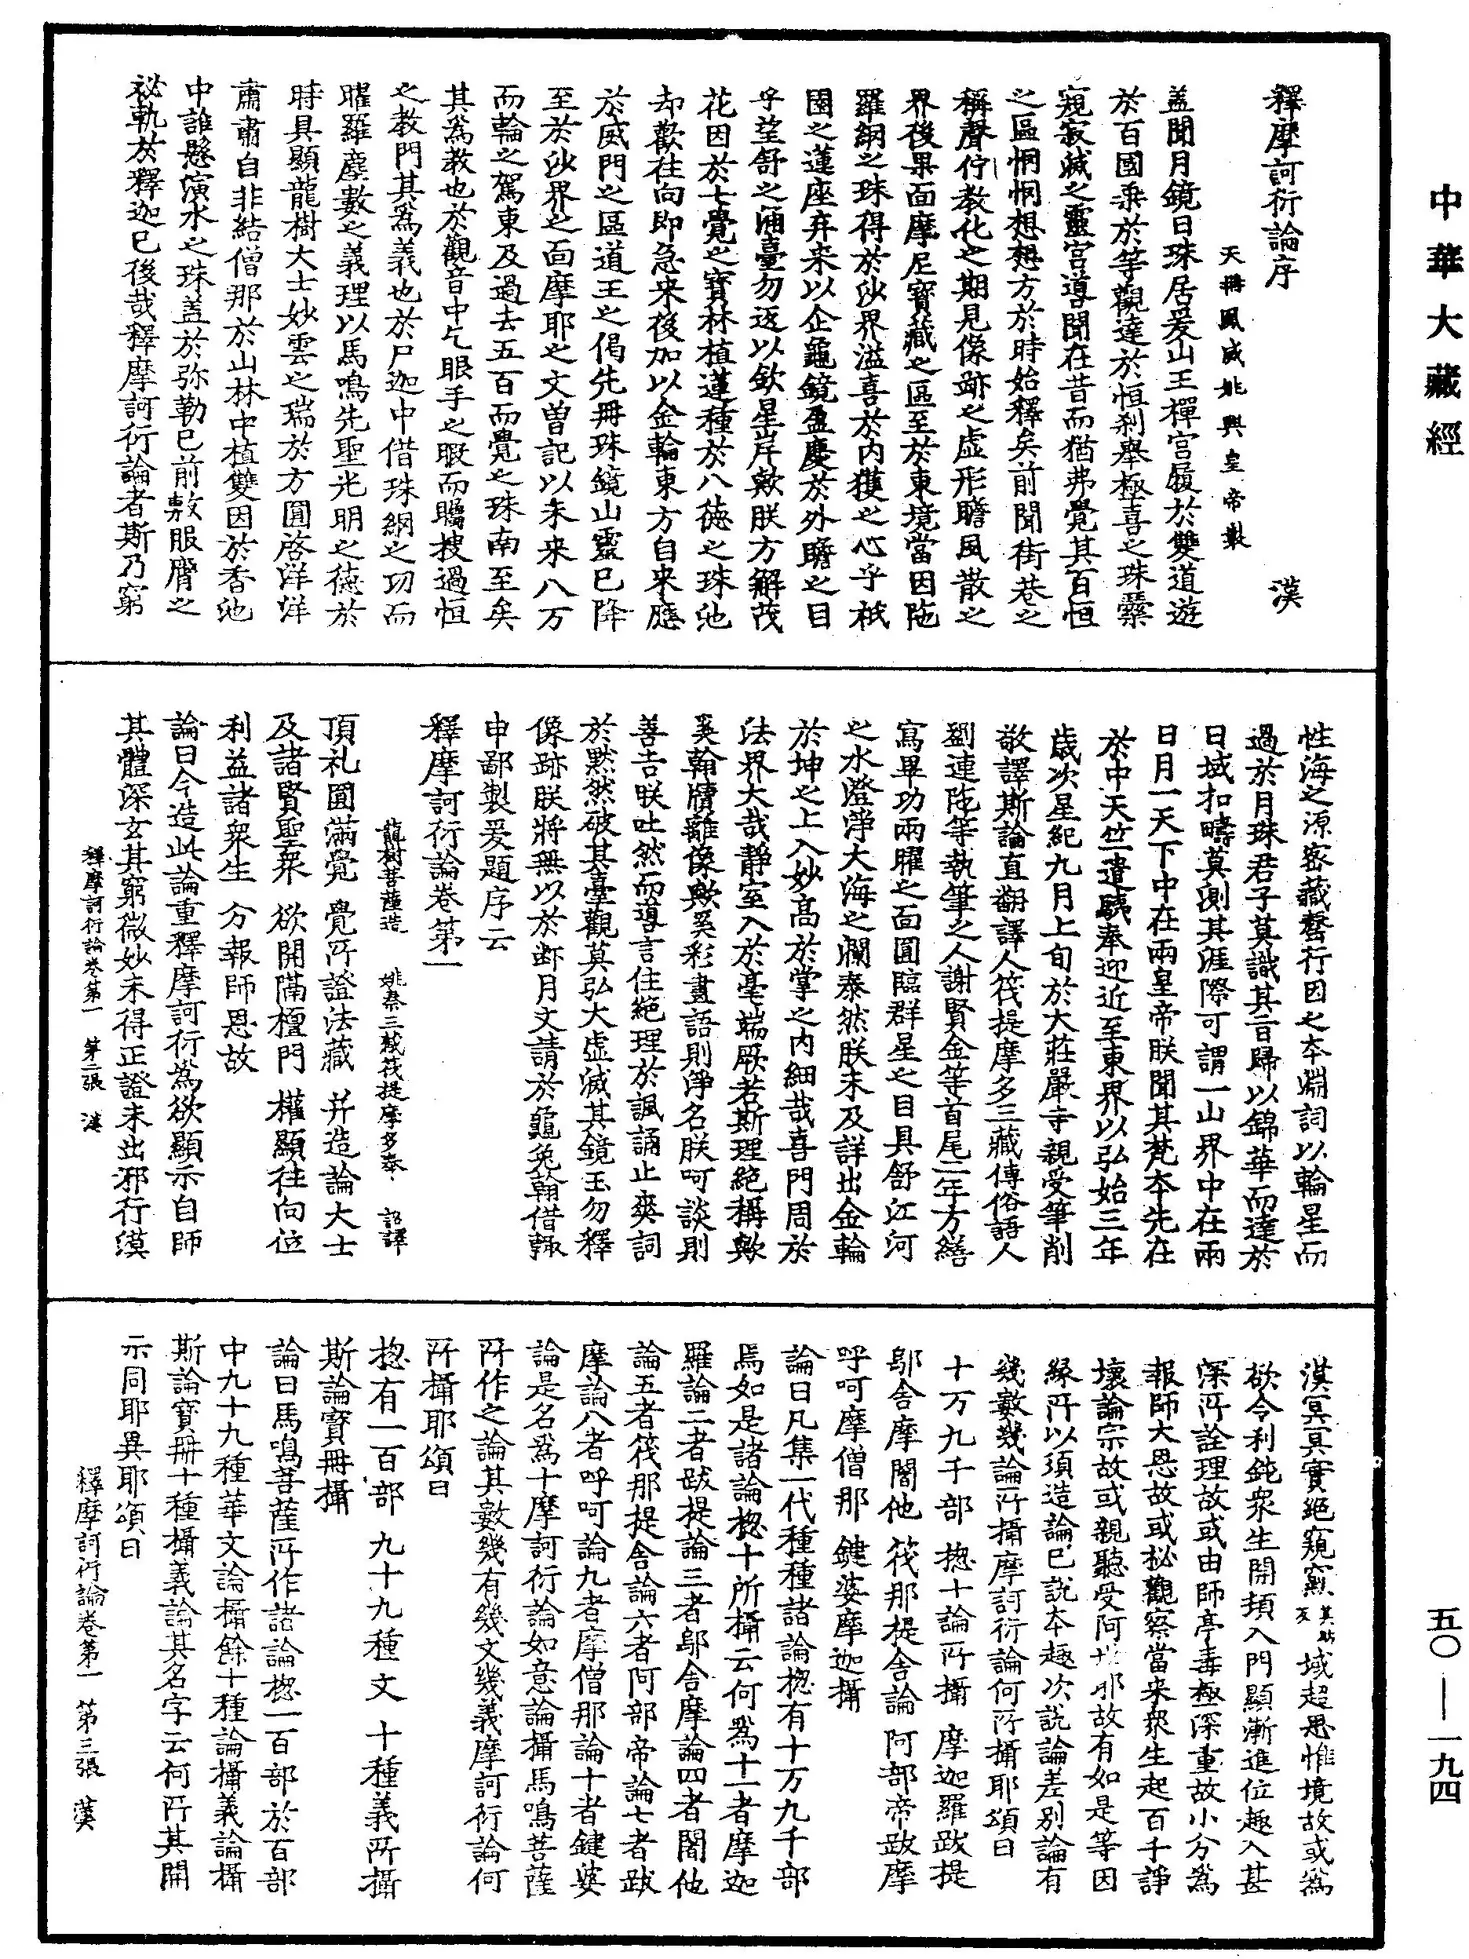 中華大藏經
五〇——一九四
釋摩訶衍論序　漢
天冊鳳威姚興皇帝製
盖聞月鏡日珠居爰山王禪宮履於雙道遊
於百國乘於等觀達於恒刹舉極喜之珠
窺寂滅之靈宮道聞在昔而猶弗覺其百恒
之區惘惘想想方於時始釋矣前聞街巷之
稱聲佇教化之期見像跡之虛形瞻風散之
界後果面摩尼寶藏之區至於東境當因陁
羅網之珠得於沙界溢喜於內獲之心乎祇
園之蓮座弃来以企龜鏡盈慶於外瞻之目
乎望舒之臺勿返以欽星岸歟朕方解茂
花因於七覺之寶林植蓮種於八德之珠池
却歡往向即急来後加以金輪東方自来應
於威門之區道王之偈先冊珠鏡山靈已降
至於沙界之面摩耶之文曽記以未来八万
而輪之駕東及過去五百而覺之珠南至矣
其為教也於觀音中乞眼手之暇而矚搜過恒
之教門其為義也於尸迦中借珠網之功而
曜羅塵數之義理以馬鳴先聖光明之德於
時具顯龍樹大士妙雲之瑞於方圓啓洋洋
肅肅自非結僧那於山林中植雙因於香池
中誰懸演水之珠盖於弥勒已前敷服膺之
祕軌於釋迦已後哉釋摩訶衍論者斯乃窮
性海之源密藏罄行因之本淵詞以輪星而
過於月珠君子莫識其旨歸以錦華而達於
日域扣疇莫測其涯際可謂一山界中在兩
日月一天下中在兩皇帝朕聞其梵本先在
於中天竺遣驍奉迎近至東界以弘始三年
歲次星紀九月上旬於大莊嚴寺親受筆削
敬譯斯論直翻譯人筏提摩多三藏傳俗語人
劉連陁等執筆之人謝賢金等首尾二年方繕
寫畢功兩曜之面圓臨群星之目具舒江河
之水澄淨大海之瀾泰然朕未及詳出金輪
於坤之上入妙高於掌之內細哉喜門周於
法界大哉靜室入於毫端厥若斯理絕稱歟
奚翰牘離像歟奚彩畫語則淨名朕呵談則
善吉朕吐然而導言住絕理於諷誦止爽詞
於黙然破其臺觀莫弘大虛滅其鏡玉勿釋
像跡朕將無以於断月文請於龜兔翰借輙
申鄙製爰題序云
釋摩訶衍論卷第一
龍樹菩薩造　姚秦三藏筏提摩多奉詔譯
頂礼圓滿覺　覺所證法藏　并造論大士
及諸賢聖衆　欲開隔檀門　權顯往向位
利益諸衆生　分報師恩故
論曰今造此論重釋摩訶衍為欲顯示自師
其體深玄其窮微妙未得正證未出邪行漠
釋摩訶衍論卷第一　第二張　漢
漠冥冥實絕窺窬域超思惟境故或為
欲令利鈍衆生開頊入門顯漸進位趣入甚
深所詮理故或由師亭毒極深重故小分為
報師大恩故或祕觀察當来衆生起百千諍
壞論宗故或親聽受阿世耶故有如是等因
緣所以須造論已說本趣次說論差別論有
幾數幾論所攝摩訶衍論何所攝耶頌曰
十万九千部　揔十論所攝　摩迦羅跋提
鄔舍摩閣他　筏那提舍論　阿部帝跋摩
呼呵摩僧那　鍵婆摩迦攝
論曰凡集一代種種諸論揔有十万九千部
焉如是諸論揔十所攝云何為十一者摩迦
羅論二者跋提論三者鄔舍摩論四者閣他
論五者筏那提舍論六者阿部帝論七者跋
摩論八者呼呵論九者摩僧那論十者鍵婆
論是名為十摩訶衍論如意論攝馬鳴菩薩
所作之論其數幾有幾文幾義摩訶衍論何
所攝耶頌曰
揔有一百部　九十九種文　十種義所攝
斯論寶冊攝
論曰馬鳴菩薩所作諸論揔一百部於百部
中九十九種華文論攝餘十種論攝義論攝
斯論寶冊十種攝義論其名字云何所其開
示同耶異耶頌曰
釋摩訶衍論卷第一　第三張　漢